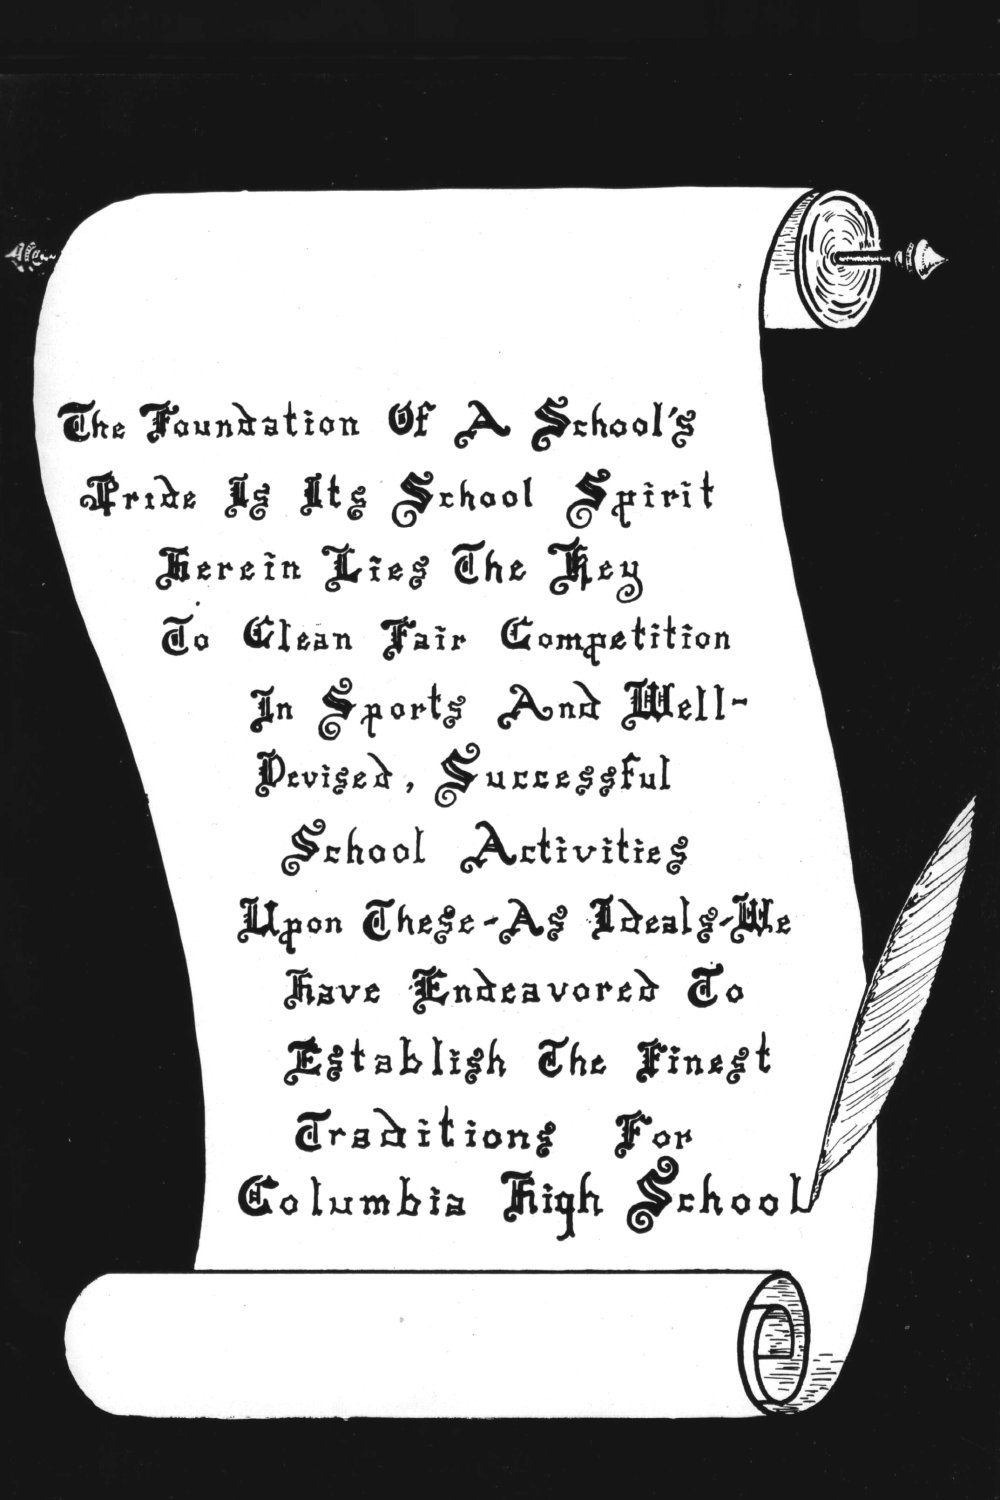 The Foundation Of A School's
Pride Is Its School Spirit
Herein Lies The Key
To Clean Fair Competition
In Sports And Well-
Devised, Successful
School Activities
Upon These-As Ideals-We
Have Endeavored To
Establish The Finest
Traditions For
Columbia High School